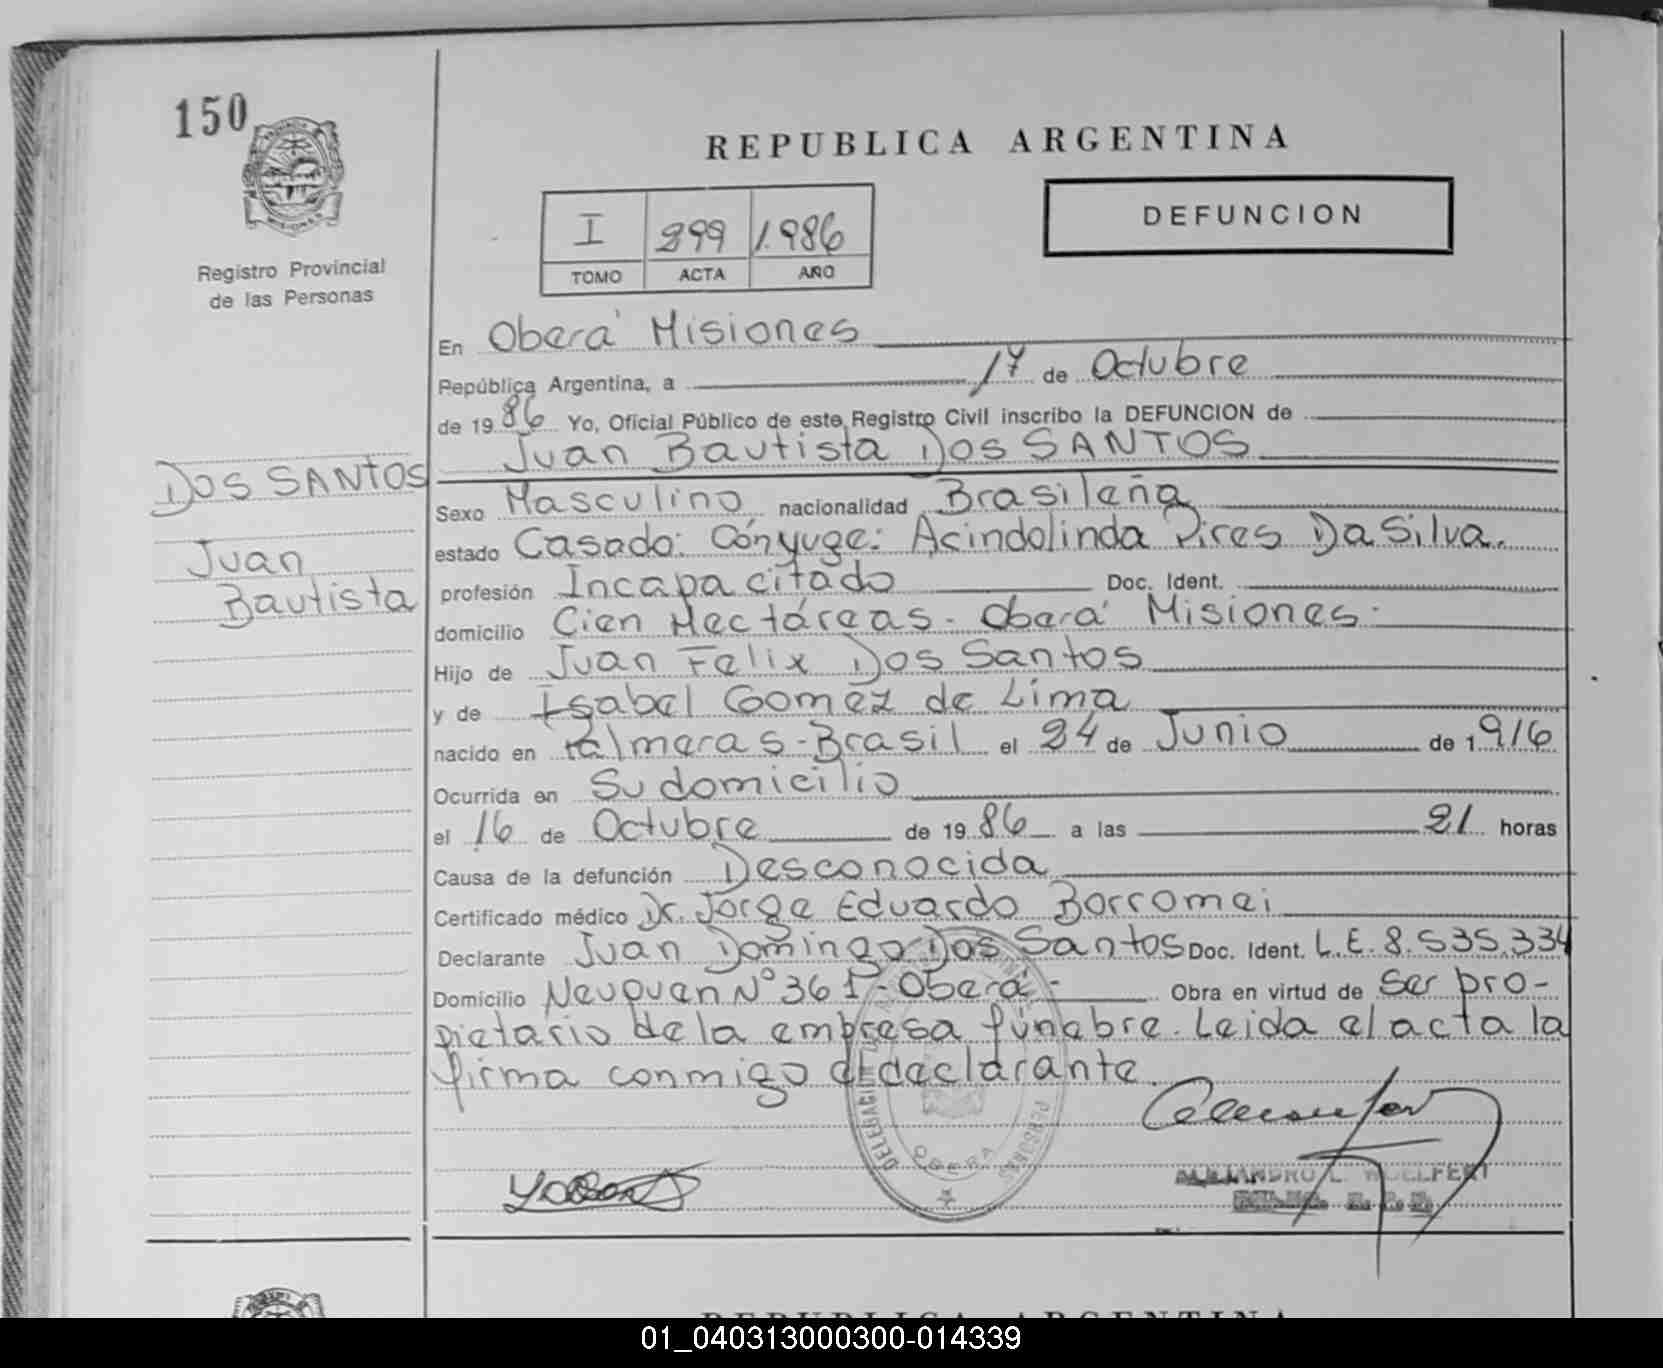 150
REPUBLICA ARGENTINA
DEFUNCION
I 299 1.986
TOMO ACTA AÑO
Registro Provincial
de las Personas
En Oberá Misiones
República Argentina, a 17 de Octubre
de 19 86 Yo, Oficial Público de este Registro Civil inscribo la DEFUNCION de
Juan Bautista Dos SANTOS
DOS SANTOS
Juan
Bautista
Sexo Masculino nacionalidad Brasileña
estado Casado: Cónyuge: Acindolinda Pires Da Silva.
profesión Incapacitado Doc. Ident.
domicilio Cien Hectáreas - Oberá Misiones.
Hijo de Juan Felix Dos Santos
y de Isabel Gomez de Lima
nacido en Palmeras - Brasil el 24 de Junio de 1916
Ocurrida en Su domicilio
el 16 de Octubre de 19 86 a las 21 horas
Causa de la defunción Desconocida
Certificado médico Dr. Jorge Eduardo Borromei
Declarante Juan Domingo Dos Santos Doc. Ident. L.E. 8.535.334
Domicilio Neuquen N° 361 - Oberá - Obra en virtud de Ser pro-
pietario de la empresa fúnebre. Leida el acta la
firma conmigo el declarante.
DELEGACION PERSONAS
OBERA
ALEJANDRO L. WOELFERT
REPUBLICA ARGENTINA
01_040313000300-014339